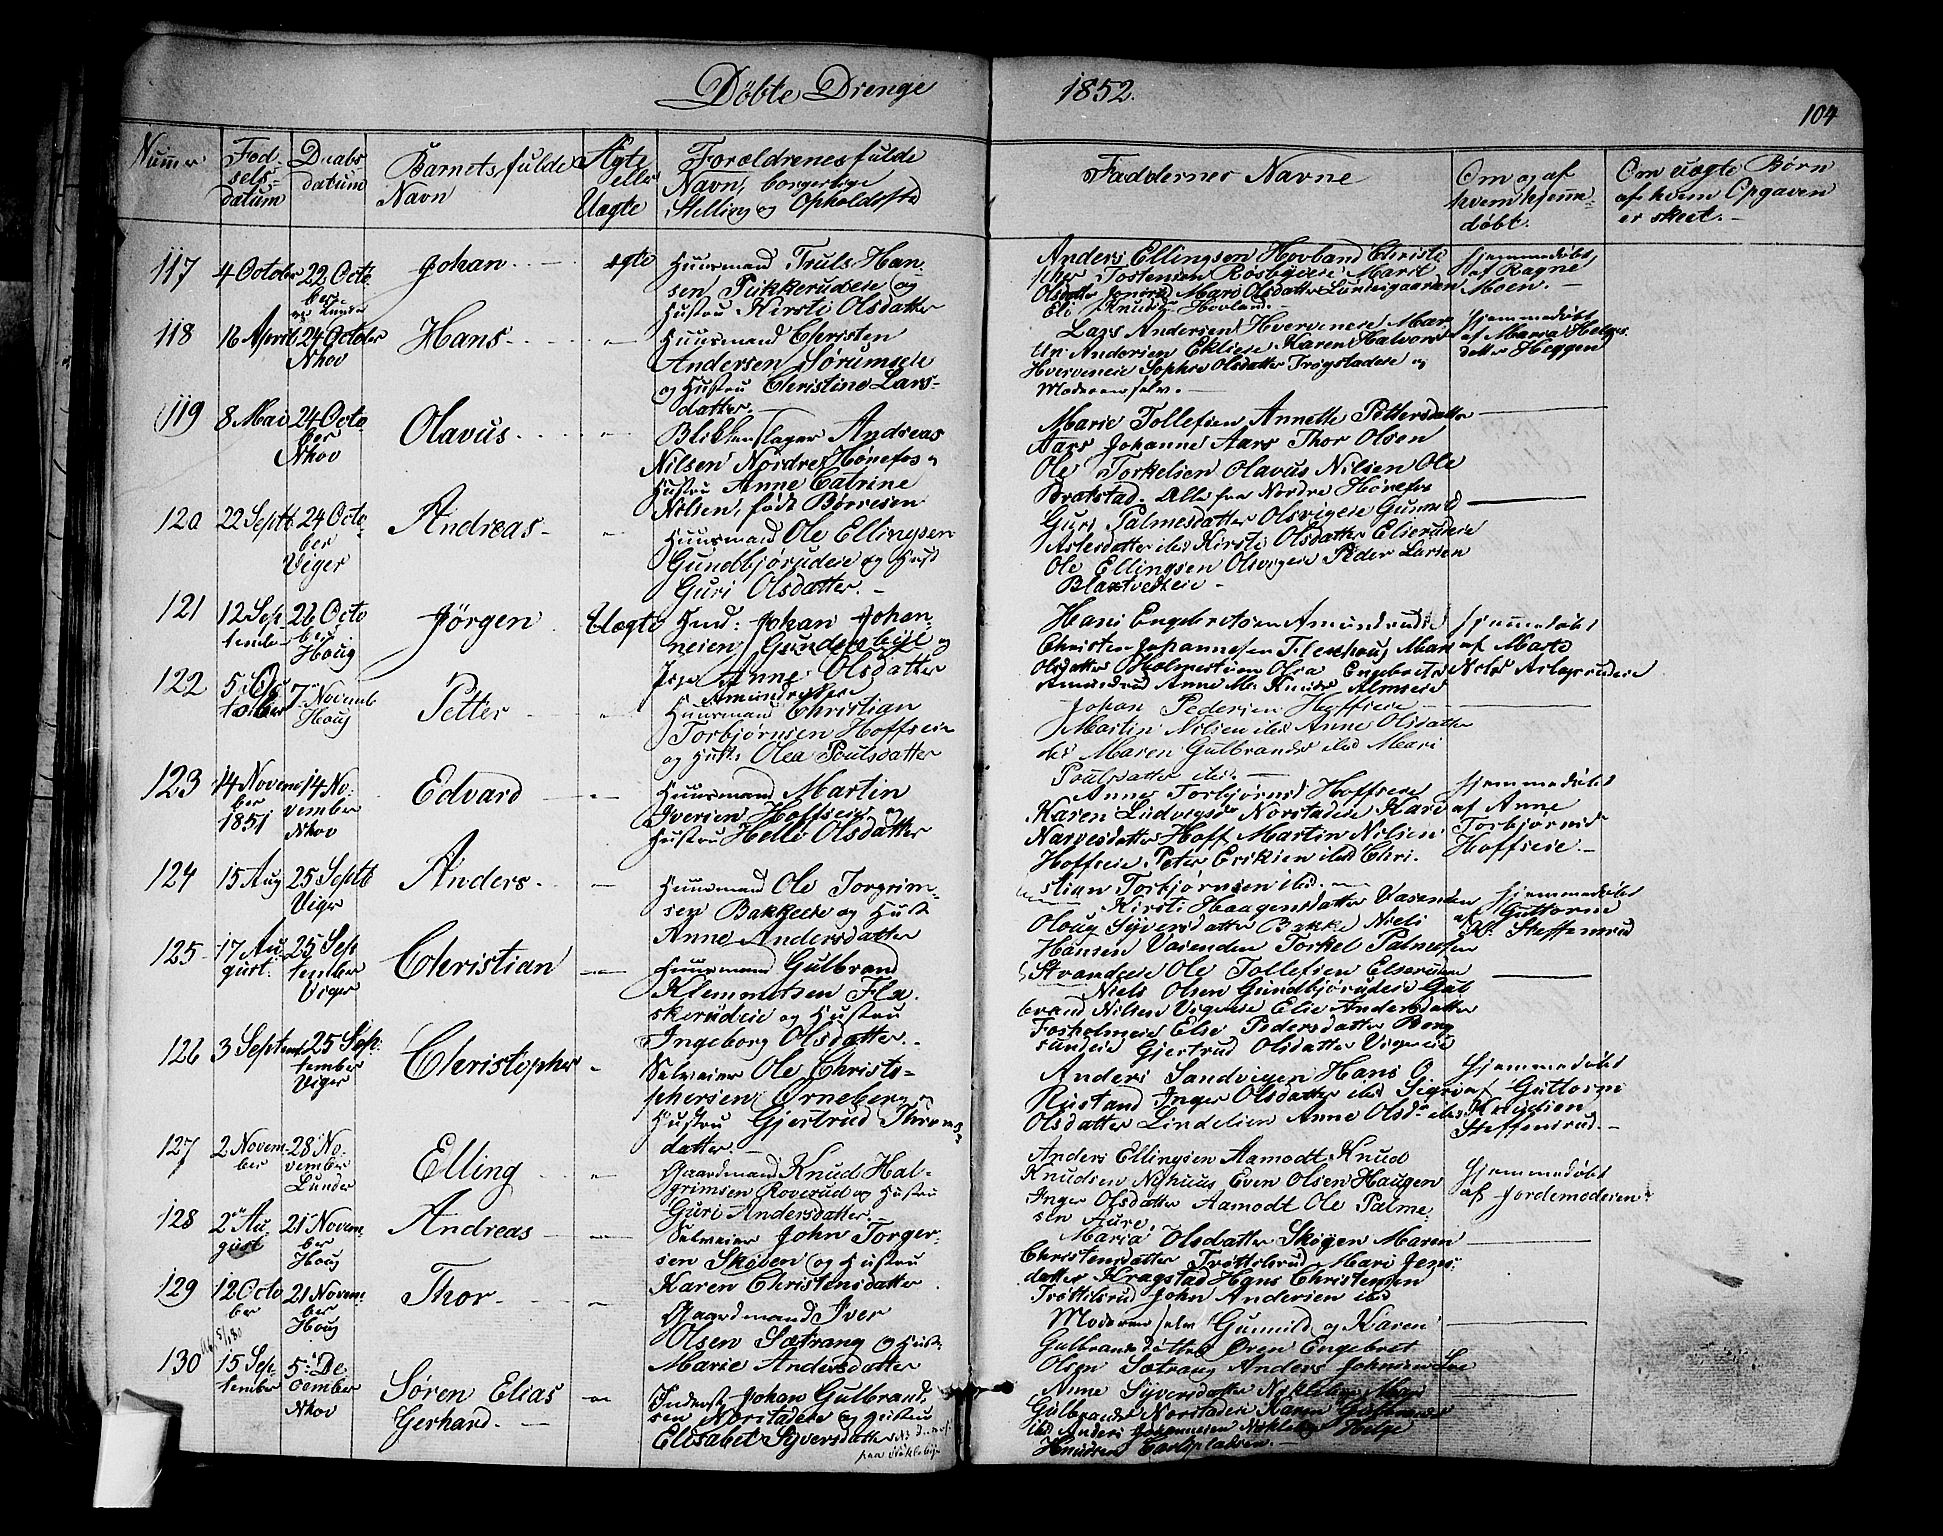 Döbte Drenge 1852.
104
Numer
Fød-
sels-
datum
Daabs
datum
Barnets fulde
Navn
Ægte
eller
Uægte
Forældrenes fulde
Navn, borgerlige
Stilling og Opholdssted
Faddernes Navne
Om og af
hvem hjemme=
döbt.
Om uægte Börn
af hvem Opgaven
er skeet. -
117
4 October
22 Octo
ber
Lunder
Johan
ægte
Huusmand Truls Han-
sen Plikkerudeie og
Hustru Kirsti Olsdatter
Anders Ellingsen Hovland Christi
Tostensen Rosbyeie Mari
Olsdatter Mari Olsdatter Lundesgaarden
Eli Knudsd. Hovland. -
Hjemmedöbt
af Ragne
Moen. -
118
16 April
24 October
Nhov
Hans
Huusmand Christen
Andersen Sörumseie
og Hustru Christine Lars-
datter. -
Lars Andersen Hverveneie Mar
Andersen Eklieie Karen Halvorsd
Hverveneie Sophie Olsdatter Trögstadeie og
Moderen selv. -
Hjemmedöbt
af Maria Helges
datter Heggen
119
8 Mai
24 Octo
ber
Nhov
Olavus
Blikkenslager Andreas
Nilsen Nordre Hönefos og
Hustru Anne Catrine
Nilsen, födt Börresen
Marie Tollefsen Annette Pettersdatter
Aars Johanne Aars Thor Olsen
Ole Torkelsen Olavus Nilsen Ole
Bratstad. Alle fra Nordre Hönefos
120
22 Septb
24 Octo
ber
Viger
Andreas
Huusmand Ole Ellingsen
Gundbjörudeie og Hust
Guri Olsdatter. -
Guri Palmesdatter Olsvigeie Gunnild
Aslesdatter ibid Kirsti Olsdatter Elserudeie
Ole Ellingsen Olsvigeie Peder Larsen
Blaxtvedteie -
121
12 Sep
tember
26 Octo
ber
Houg
Jörgen
Uægte
Johan Johan-
nesen Gundersbyeie og
Pige Anne Olsdatter
Amundrudeie
Hans Engebretsen Amundrud
Christen Johannesen Flexhoug Mari
Olsdatter Holmestien Olea Engebrets
Amundrud Anne M. Knuds Almseie
Hjemmedöbt
af Marte
Niels Aslagsrudeie
122
5 Oc
tober
7 Novemb
Houg
Petter
Huusmand Christian
Torbjörnsen Hoffseie
og Hust: Olea Poulsdatter
Johan Pedersen Hoffseie
Martin Nilsen ibd Anne Olsdatter
ibd Maren Gulbrands ibid Mari
Poulsdatter ibd. -
123
14 Novem
ber
1851
14 No-
vember
Nhov
Edvard
Huusmand Martin
Iversen Hoffseie og
Hustru Helle Olsdatter
Anne Torbjörnsd Hoffseie
Karen Ludvigsd Norstadeie Kari
Narvesdatter Hoff Martin Nilsen
Hoffseie Peter Eriksen ibid Chri-
stian Torbjörnsen ibid. -
Hjemmedöbt
af Anne
Torbjörnsd
Hoffseie. -
124
15 Aug
25 Septb
Viger
Anders
Huusmand Ole Torgrim-
sen Bakkeeie og Hust
Anne Andersdatter
Kirsti Haagensdatter Vasenden
Oloug Syversdatter Bakke Niels
Hansen Vasenden Torkel Palmesen
Strandeie Ole Tollefsen Elserudeie
Hjemmedöbt
af Guttorm
K. Steffensrud
125
17 Au-
gust.
25 Sep
tember
Viger
Christian
Huusmand Gulbrand
Klemmetsen Flx-
skerudeie og Hustru
Ingeborg Olsdatter. -
Niels Olsen Gundbjörudeie Gul
brand Nilsen Vigerseie Elie Andersdatter
Fosholmeie Else Pedersdatter Borg
sundeie Gjertrud Olsdatter Vigerseie
126
3 Septemb
25 Sep-
tember
Viger
Christopher
Selveier Ole Christo-
phersen Örneberg og
Hustru Gjertrud Thoms
datter. -
Anders Sandvigen Hans O
Rustand Inger Olsdatter ibid Sigri
Olsdatter Lindelien Anne Olsd. ibid
Hjemmedöbt
af Guttorm
Knudsen
Steffensrud. -
127
2 Novem-
ber
28 No-
vember
Lunder
Elling
Gaardmand Knud Hal-
grimsen Roverud og Hustru
Guri Andersdatter. -
Anders Ellingsen Aamodt Knud
Knudsen Nishuus Even Olsen Haugen
Inger Olsdatter Aamodt Ole Palme-
sen Aure.
Hjemmedöbt
af Jordemoderen
128
2 Au-
gust
21 Novem-
ber
Houg
Andreas
Selveier John Torger-
sen Skoven og Hustru
Karen Christensdatter
Maria Olsdatter Skogen Maren
Christensdatter Tröttilsrud Mari Jens
datter Kragstad Hans Christensen
Tröttilsrud John Andersen ibid
129
12 Octo
ber
21 Novem-
ber
Houg
Thor
Gaardmand Iver
Olsen Sætrang og Hust:
Marie Andersdatter
Moderen selv Gunnild og Karen
Gulbrandsdöttre Oren Engebret
Olsen Sætrang Anders Johnsen
130
15 Sep-
tember
5 De-
cember
Nhov
Sören Elias
Gerhard. -
Inderst Johan Gulbrand-
sen Norstadeie og Hustru
Elisabet Syversdatter
paa Nökleby
Anne Syversdatter Nökleby Mari
Gulbrandsd Norstadeie Karen
ibd Anders Johannesen Nökleby Helge
Knudsen